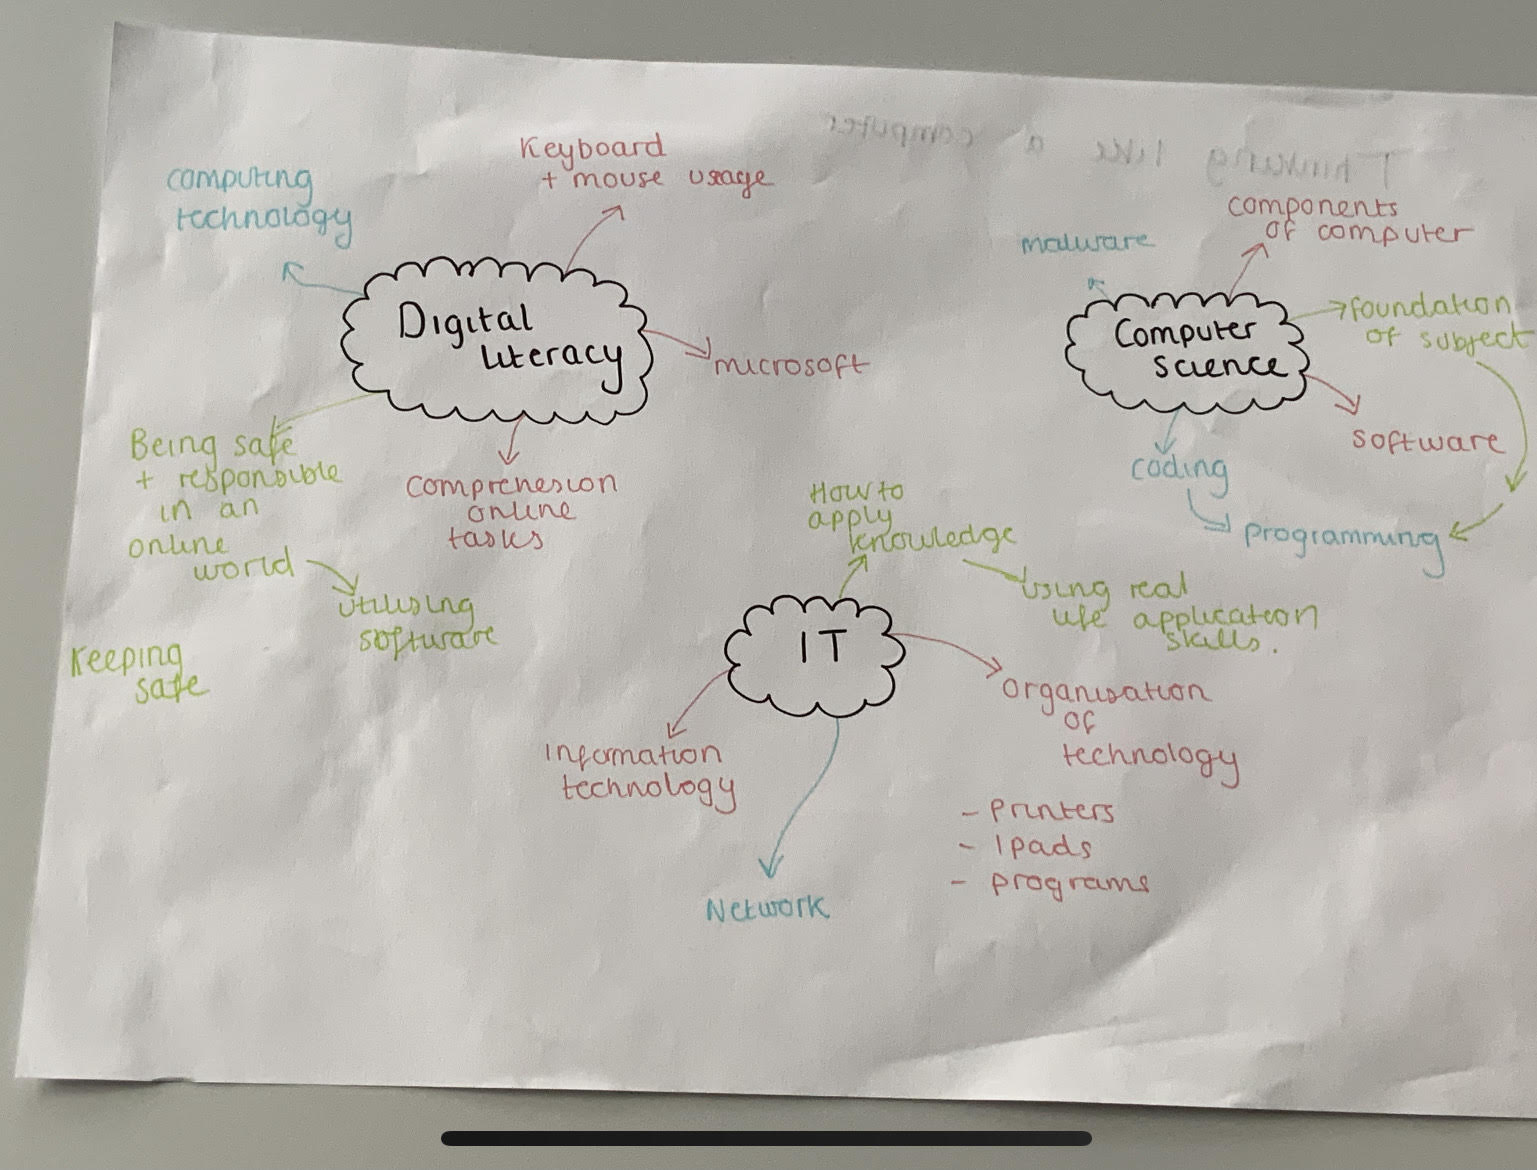 Thinking like a computer
Keyboard
+ mouse usage
computing
technology
Digital
literacy
microsoft
Being safe
+ responsible
in an
online
world
utilising
software
Keeping
safe
comprehension
online
tasks
malware
components
of computer
Computer
science
foundation
of subject
software
coding
programming
How to
apply
knowledge
Using real
life application
skills.
IT
organisation
of
technology
- Printers
- Ipads
- programs
Information
technology
Network